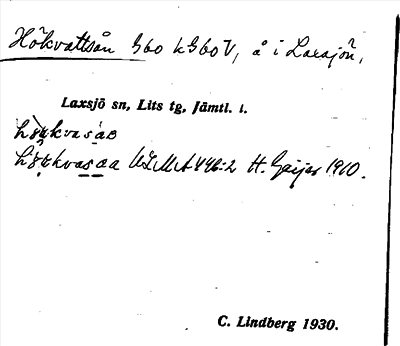 Hökvattsån G60 kGGOV, å i Laxsjön,
Laxsjö sn, Lits tg, Jämtl. l.
hökkvasaa
hökkvasaa ULMA 446:2 H. Geijer 1910.
C. Lindberg 1930.